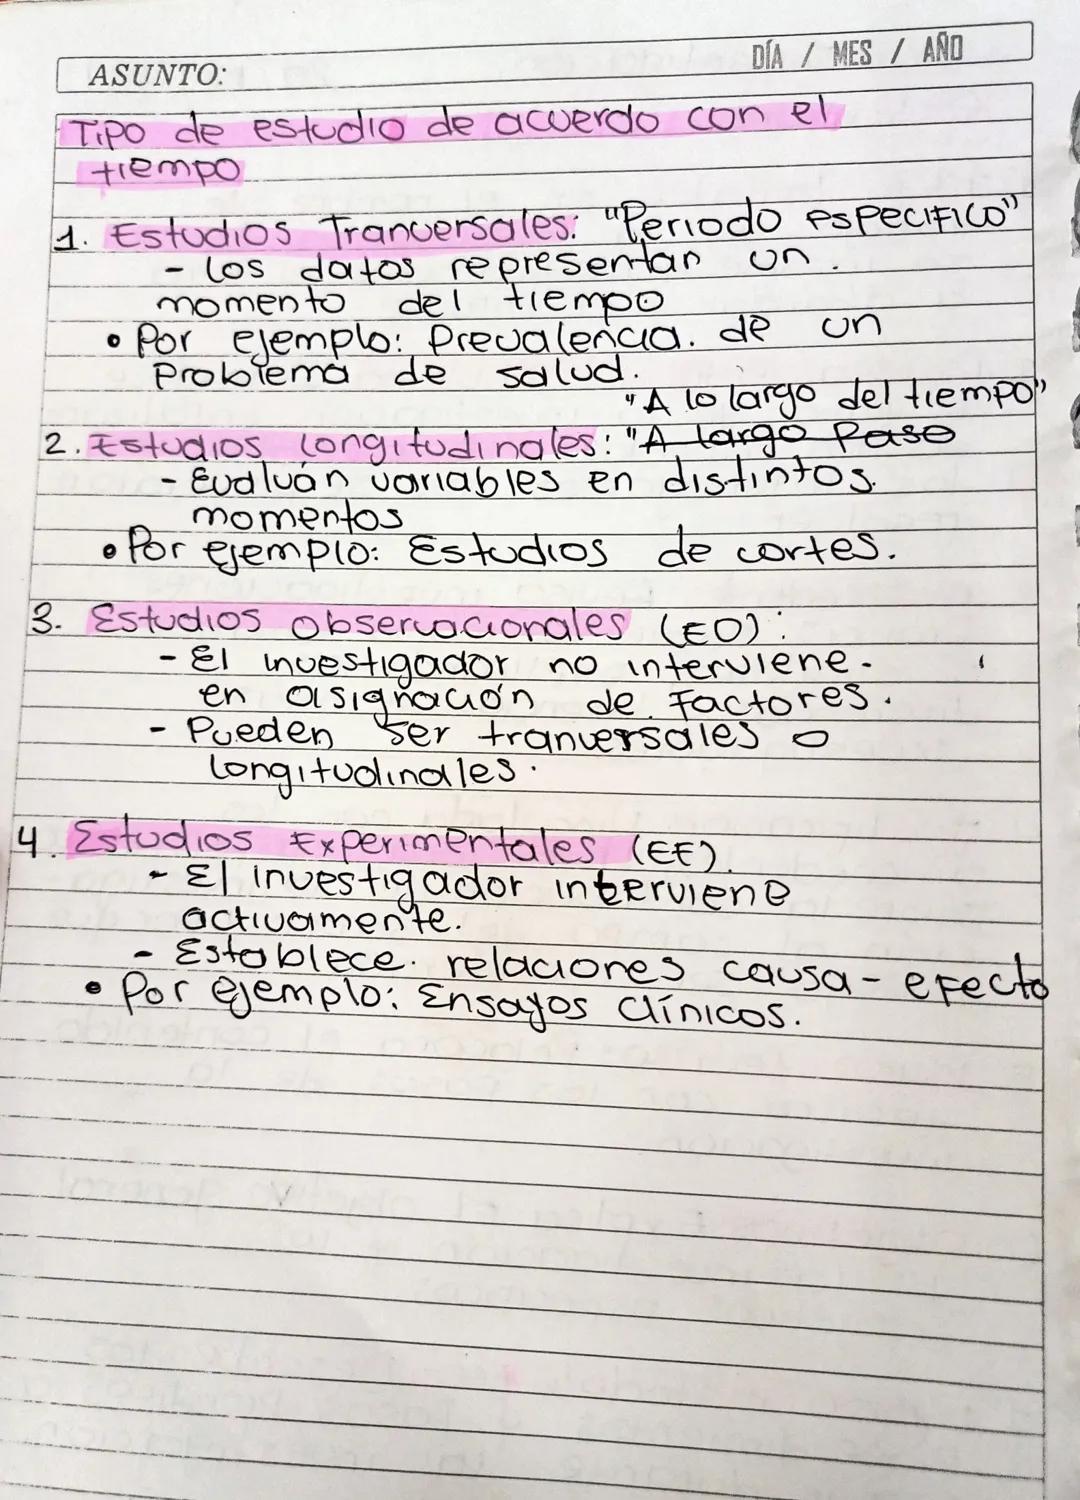 ASUNTO: DÍA / MES / AÑO
Tipo de estudio de acuerdo con el
tiempo
1. Estudios Tranversales: "Periodo especifico"
- Los datos representan un
momento del tiempo
• Por ejemplo: Prevalencia. de un
problema de salud.
"A lo largo del tiempo"
2. Estudios Longitudinales: "A largo Paso
- Evaluán variables en distintos
momentos
• Por ejemplo: Estudios de cortes.
3. Estudios Observacionales (EO):
- El investigador no interviene
en asignación de factores.
- Pueden ser tranversales o
longitudinales.
4. Estudios Experimentales (EE)
- El investigador interviene
activamente.
- Establece relaciones causa - efecto
• Por ejemplo: Ensayos Clínicos.